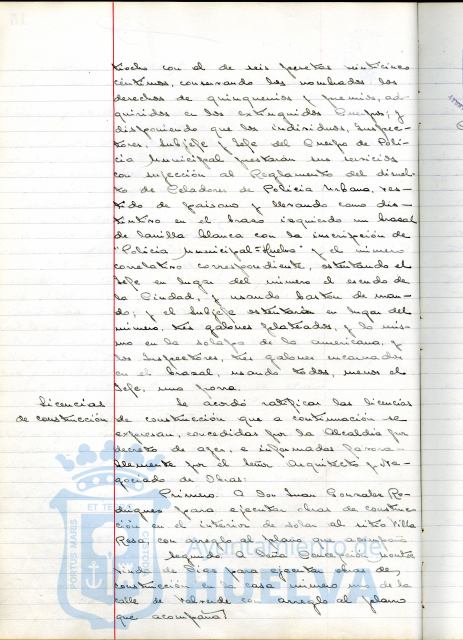 ticho con el de seis pesetas veinticinco
céntimos, conservando los nombrados los
derechos de quinquenios y premios, ad-
quiridos en los extinguidos Cuerpos; y
disponiendo que los individuos, Inspec-
tores, Subjefe y Jefe del Cuerpo de Poli-
cia Municipal prestarán sus servicios
con sujección al Reglamento del disuel-
to de Celadores de Policia Urbana, ves-
tido de paisano y llevando como dis-
tintivo en el brazo izquierdo un brazal
de lanilla blanca con la inscripción de
"Policia Municipal=Huelva" y el número
correlativo correspondiente, ostentando el
Jefe en lugar del número el escudo de
la Ciudad, y usando bastón de man-
do; y el Subjefe ostentaria en lugar del
número, tres galones plateados, y lo mis-
mo en la solapa de la americana, y
los Inspectores, tres galones encarnados
en el brazal, usando todos, menos el
Jefe, una porra.
Licencias
de construcción
Se acordó ratificar las licencias
de construcción que a continuación se
expresan, concedidas por la Alcaldía por
decreto de ayer, e informadas favora-
blemente por el Señor Arquitecto y Ne-
gociado de Obras:
Primero. A Don Juan Gonzalez Ro-
driguez para ejecutar obras de construc-
ción en el interior de solar al sitio Villa
Rosa, con arreglo al plano que acompaña
Segundo. A Doña Concepción
Viuda de Dias para ejecutar obras de
construcción en la casa número uno de la
calle de con arreglo al plano
que acompaña.
PORTUS MARIS
ET TERRAE CUSTODIA
Ayuntamiento de
HUELVA